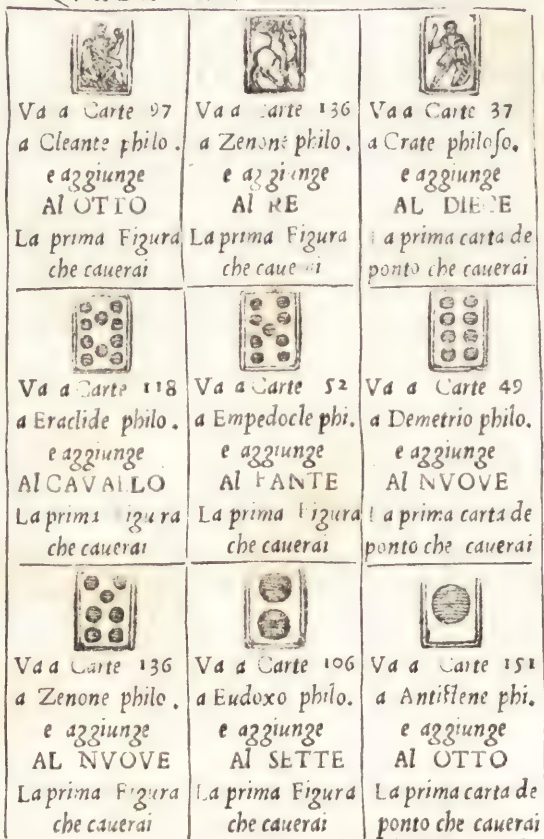 Va a Carte 97
a Cleante philo.
e aggiunge
Al OTTO
La prima Figura
che cauerai
Va a Carte 136
a Zenone philo.
e aggiunge
Al RE
La prima Figura
che cauerai
Va a Carte 37
a Crate philoso.
e aggiunge
AL DIECE
La prima carta de
ponto che cauerai
Va a Carte 118
a Eraclide philo.
e aggiunge
Al CAVALLO
La prima Figura
che cauerai
Va a Carte 52
a Empedocle phi.
e aggiunge
Al FANTE
La prima Figura
che cauerai
Va a Carte 49
a Demetrio philo.
e aggiunge
Al NVOVE
La prima carta de
ponto che cauerai
Va a Carte 136
a Zenone philo.
e aggiunge
AL NVOVE
La prima Figura
che cauerai
Va a Carte 106
a Eudoxo philo.
e aggiunge
Al SETTE
La prima Figura
che cauerai
Va a Carte 151
a Antistene phi.
e aggiunge
Al OTTO
La prima carta de
ponto che cauerai